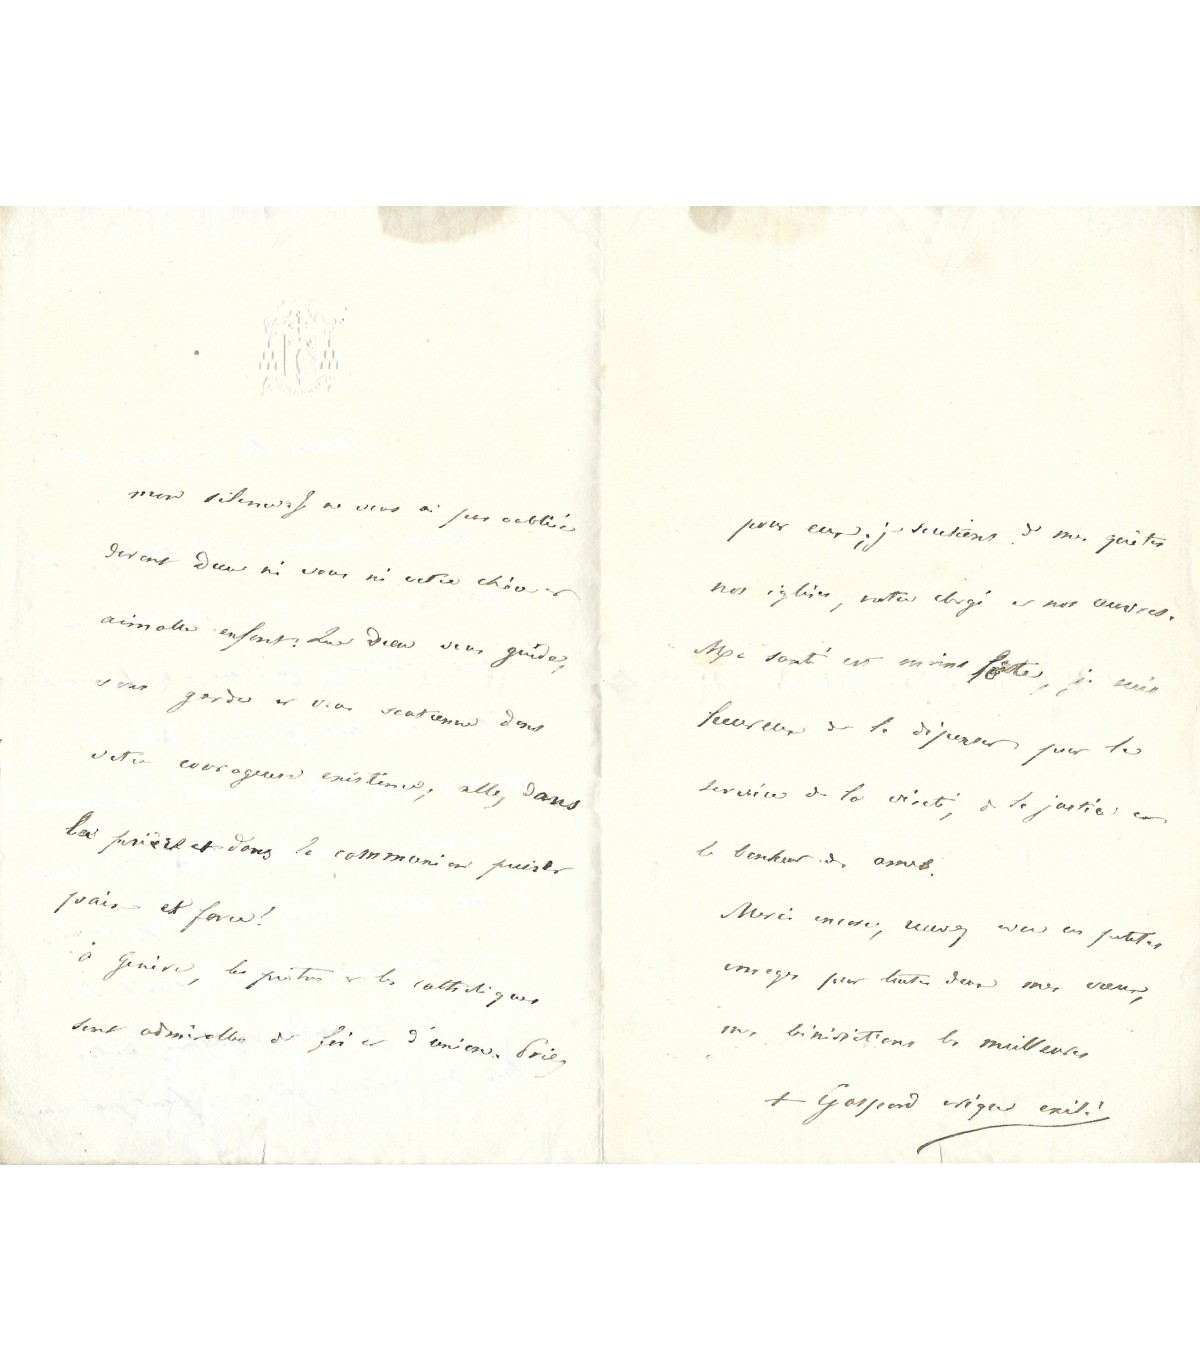 mon silence. Je ne vous ai pas oubliée
devant Dieu ni vous ni votre chère et
aimable enfant. Que Dieu vous guide,
vous garde et vous soutienne dans
votre courageuse existence; allez dans
la prière et dans la communion puiser
paix et force!
à Genève, les prêtres et les catholiques
sont admirables de foi et d'union. Priez
pour eux; je soutiens de mes quêtes
nos églises, notre clergé et nos œuvres.
Ma santé est moins forte, je suis
heureux de la dépenser pour le
service de la vérité, de la justice et
le bonheur des âmes.
Merci encore, recevez avec ces petites
images pour toutes deux mes vœux,
mes bénédictions les meilleures
+ Gaspard évêque exilé